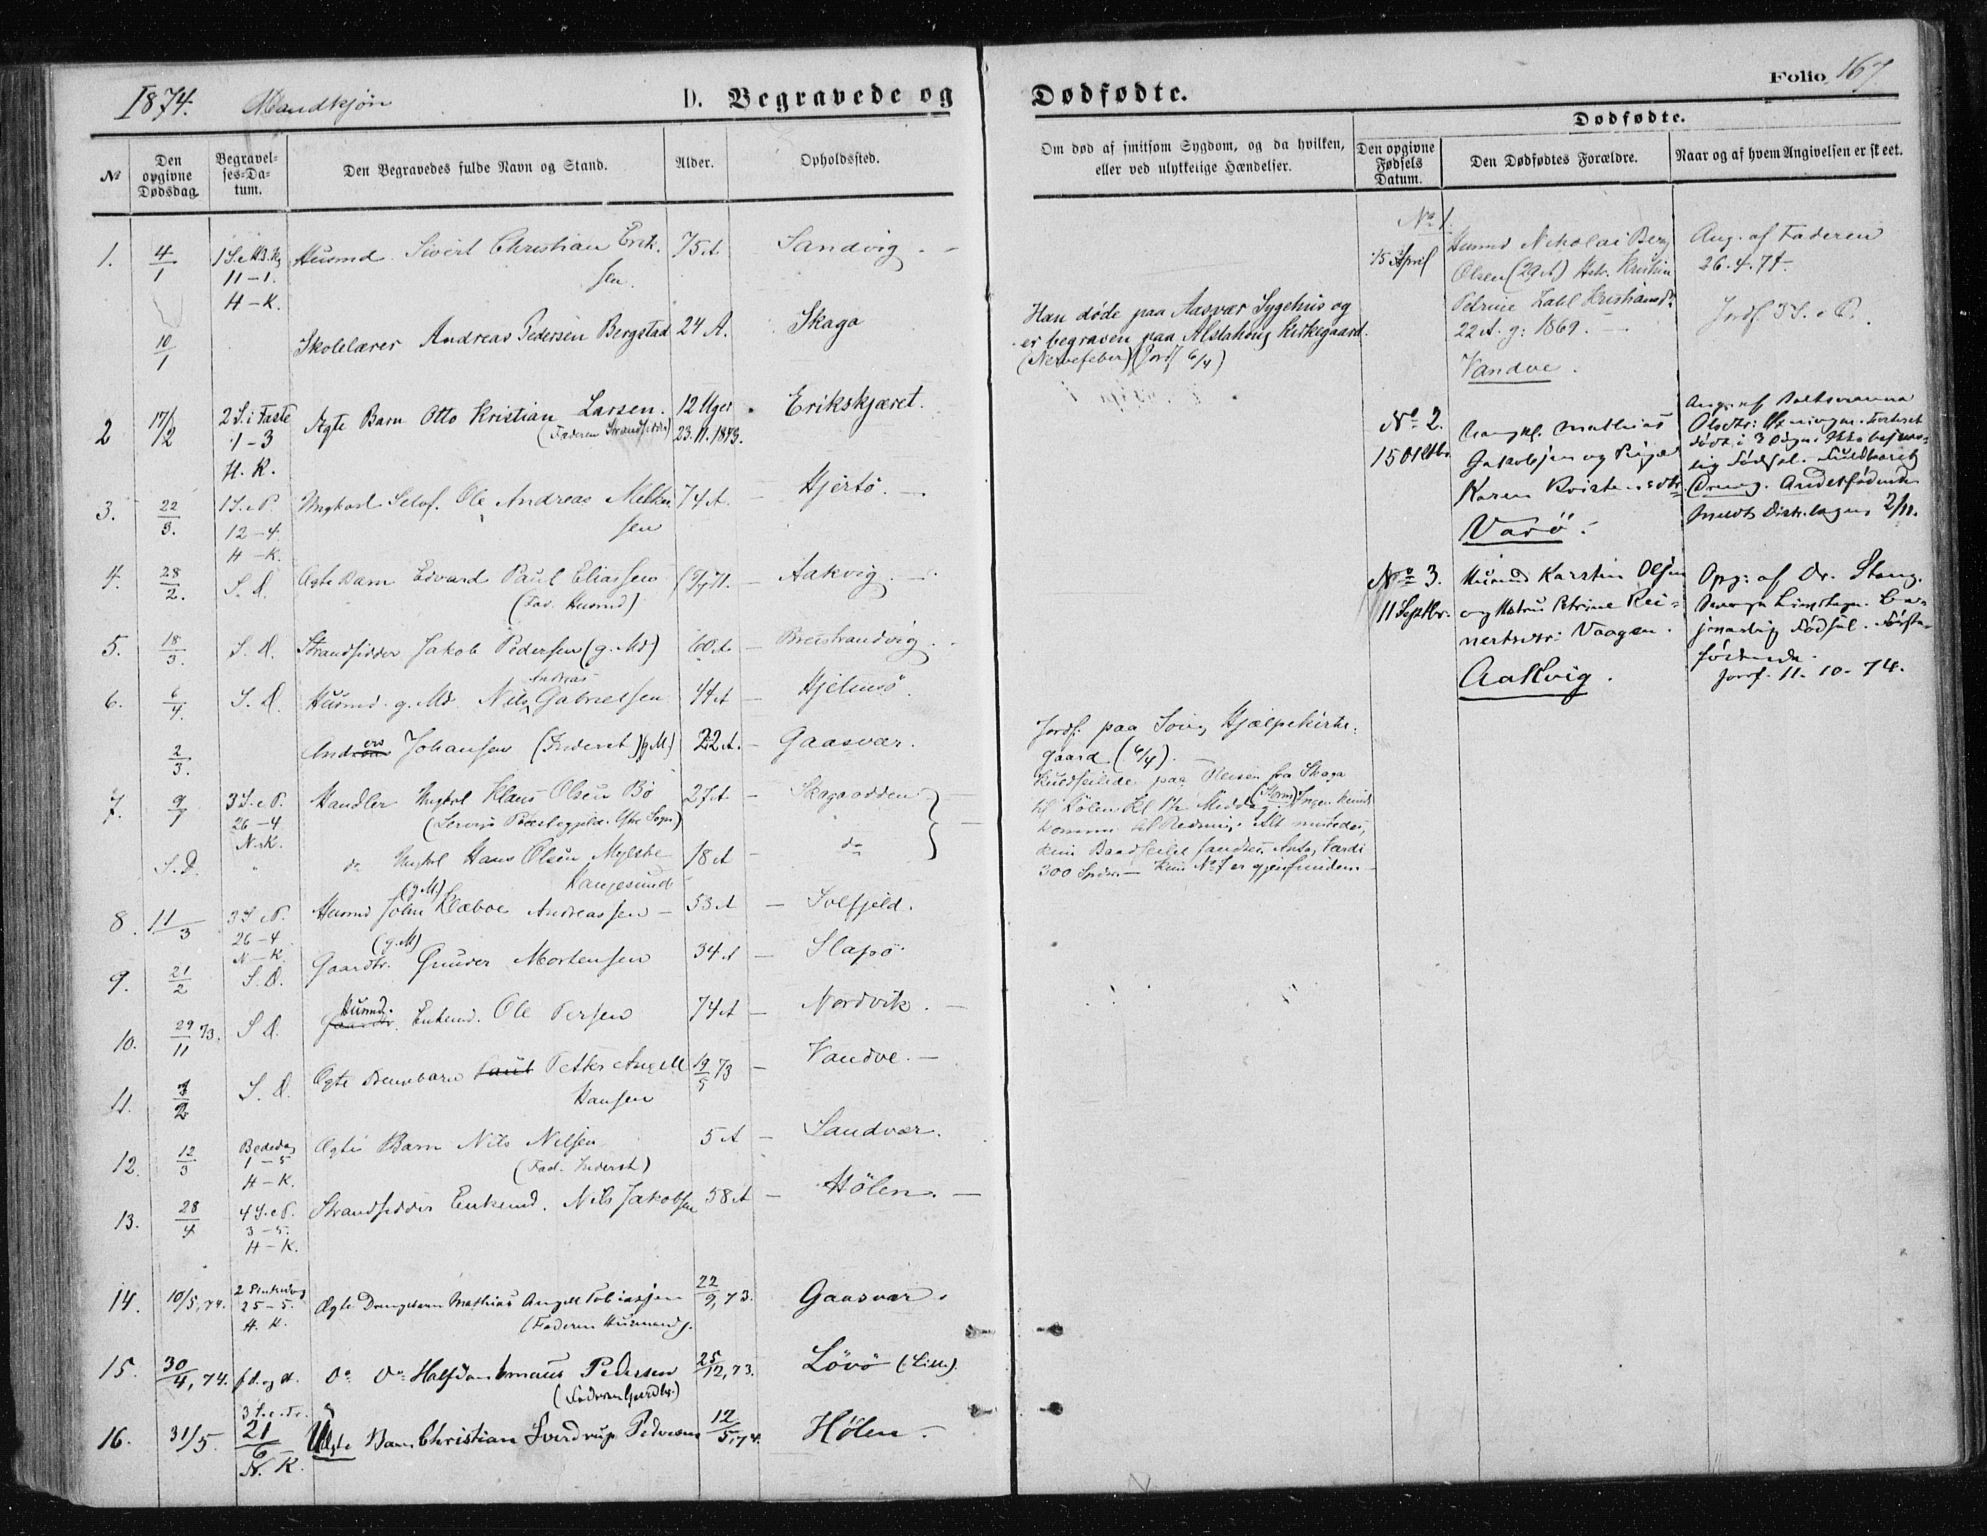 1874. Mandkjøn D. Begravede og
№ Den opgivne Dødsdag. Begravelses-Datum. Den Begravedes fulde Navn og Stand. Alder. Opholdssted.
1. 4/1 1 S. e. H.3.K. Husmd. Sivert Christian Erik- 75 A Sandvig.
11-1. sen.
H-K.
10/1 Skolelærer Andreas Pedersen Bergstad 24 A. Skaga
2 17/2 2 S. i Faste Ægte Barn Otto Kristian Larsen. 12 Uger Erikskjæret.
1-3 (Faderen Strandsidder) 23.11.1873.
H.K.
3. 22/3. 1 S. e. P. Ungkarl Selvf. Ole Andreas Mikkel 74 A Hjertø.
12-4. sen
H-K.
4. 28/2. S. D. Ægte Barn Edvard Paul Eliassen Aakvig.
(Fad. Husmd)
5. 18/3. S. D. Strandsidder Jakob Pedersen (g. Md) 60 A Breistrandvig.
6. 6/4. S. D. Husmd. g. Md. Nils Andreas Gabrielsen 44 A Hjelmsø.
2/3. Anders Johansen (Inderst) (g. M.) 22 A. Gaasvær.
7. 9/1 3 S. e. P. Handler Ungkrl Klaus Olsen Bø 27 A Skagaodden
26-4
N-K.
S. D. " do Ungkrl Hans Olsen 18 A do
Haugesund
8. 11/3 3 S. e. P. Husmd (g. M) John Klæboe Andreassen 53 A Solfjeld.
26-4
N-K.
9. 21/2 S. D. Gaardbr. (g. M) Gunder Mortensen 34 A Slapø
10. 29/11 73. S D. Husmd. Enkemd. Ole Persen 74 A Nordvik.
11. 7/2 S. D. Ægte Drengebarn Paul Petter Angell 19/5 73 Vandve.
Hansen
12. 12/3 Bededag Ægte Barn Nils Nilsen 5 A Sandvær.
1-5 (Fad. Inderst)
H-K.
13. 28/4 4 S. e. P. Strandsidder Enkemd. Nils Jakobsen 58 A Hølen.
3-5.
H-K.
14. 10/5, 74. 2 Pintsedag Ægte Drengebarn Mathias Angell Tobiassen 22/9, 73. Gaasvær.
25-5. (Faderen Husmand).
H. K.
15. 30/4, 74. f. d. og st. do do Halfdan Pedersen 25/12, 73. Løvø (Lille).
(Faderen Gaardbr.)
16. 31/5. 3 S. e. Tr. Uægte Barn Christian Sverdrup Pedersen 12/5, 74. Hølen.
21/6
N. K.
Dødfødte. Folio 167
Om død af smitsom Sygdom, og da hvilken, eller ved ulykkelige Hændelser.
Dødfødte.
Den opgivne Fødsels Datum. Den Dødfødtes Forældre. Naar og af hvem Angivelsen er skeet.
Han døde paa Aasvær Sygehus og
er begraven paa Alstahoug Kirkegaard.
(Nervefeber) (Jordf 6/4)
Jordf. paa Hjælpekirke-
gaard (6/4).
Kuldseilede paa Reisen fra Skaga
til Hølen Kl Middag (Storm) Ingen kunde
komme til Redning. Alt mistedes,
kun Baadseilet fandtes. Antag. Værdi
300 Spdr. Kun No 7 er gjenfunden
No 1.
15 April Husmd Nikolai Berg Ang. af Faderen
Olsen (29 A) Hstr. Kristine 26.4.74.
Petrine Kristiansdr
22 A. g: 1869. Jordf. 3 S. e P.
Vandve.
No 2.
15 Oktbr Ungkl. Mathias
Jakobsen og Pige
Karen
Varø.
Olsdtr:
født i 3
Fødsel. Fuldbaaret
Dreng. Andetfødende
meldt Distr.lægen 2/11.
No 3. Husmd Karstin Olsen Opg: af Dr. Stang.
11 Septbr. og Hstru Petrine Rei-
nertsdtr: Vaagen.
Aakvig.
Fødsel. Første-
fødende.
Jordf. 11-10-74.